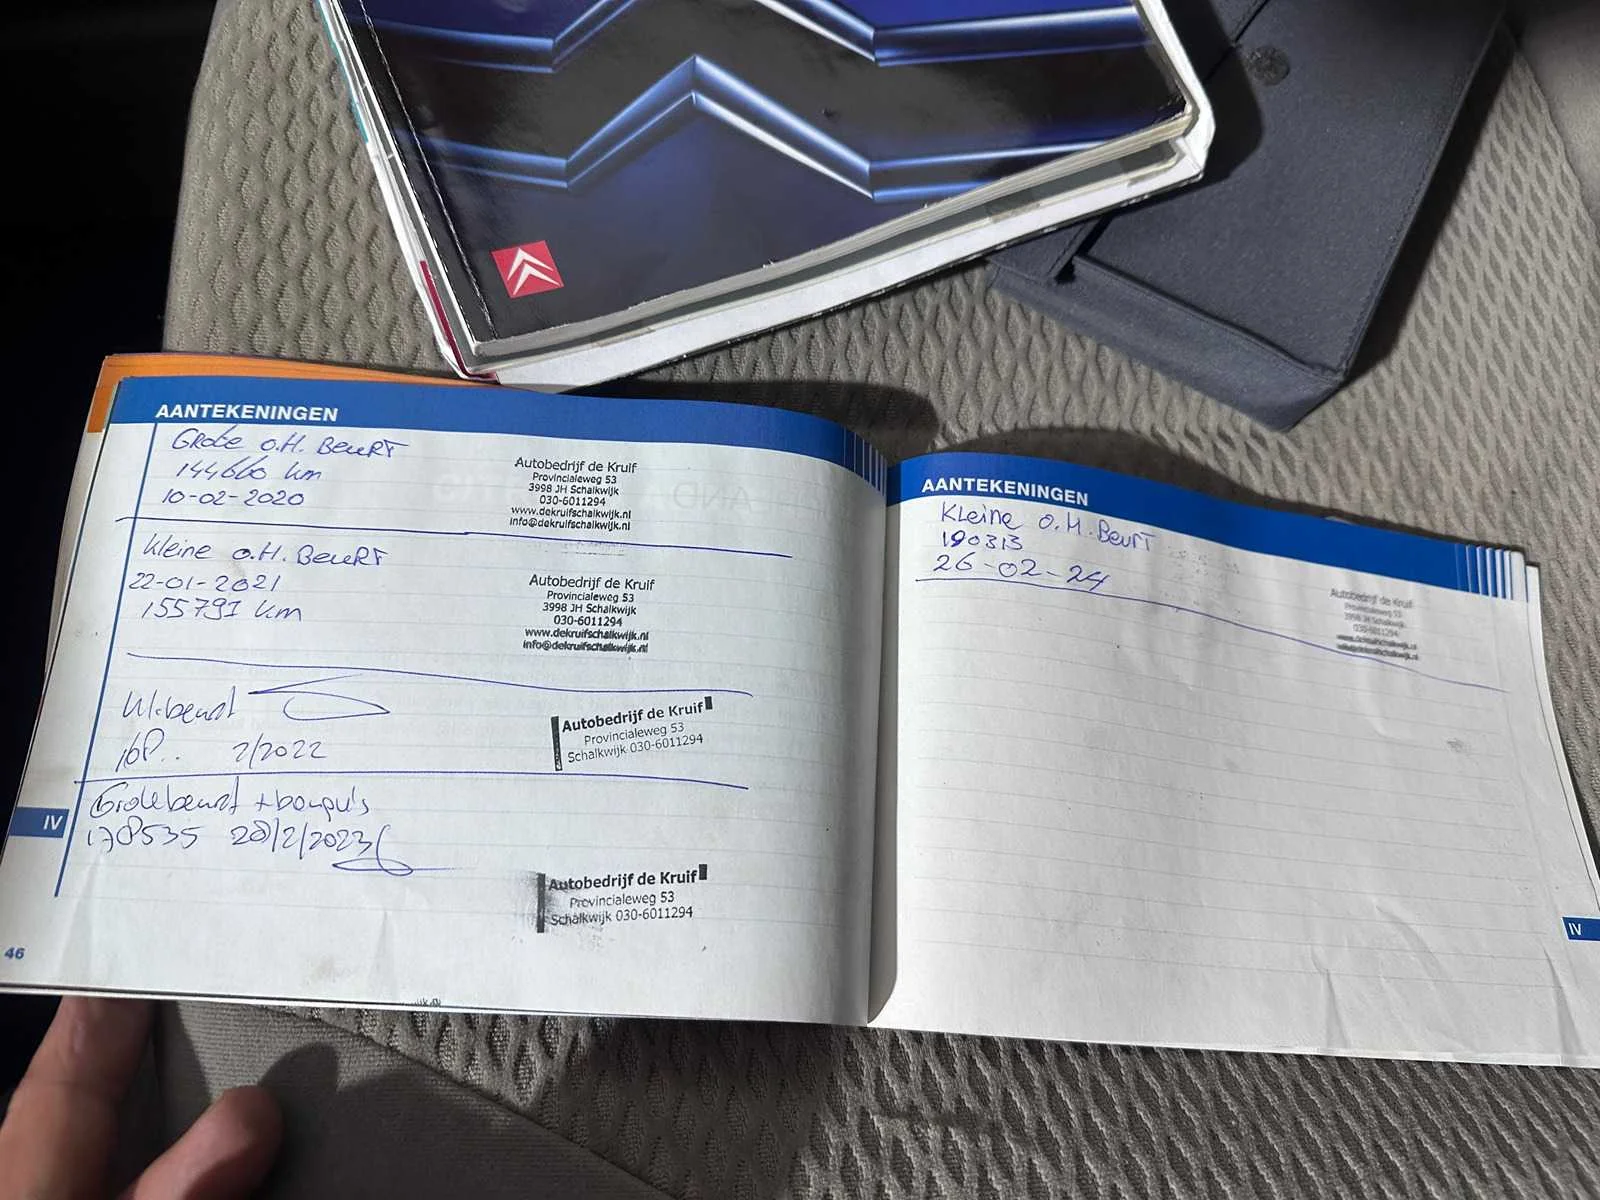 AANTEKENINGEN
Grote O.H. Beurt
144660 km
10-02-2020
Autobedrijf de Kruif
Provincialeweg 53
3998 JH Schalkwijk
030-6011294
www.dekruifschalkwijk.nl
info@dekruifschalkwijk.nl
Kleine O.H. Beurt
22-01-2021
155791 km
Autobedrijf de Kruif
Provincialeweg 53
3998 JH Schalkwijk
030-6011294
www.dekruifschalkwijk.nl
info@dekruifschalkwijk.nl
2/2022
Autobedrijf de Kruif
Provincialeweg 53
Schalkwijk 030-6011294
Grote beurt +
178535 28/2/2023
Autobedrijf de Kruif
Provincialeweg 53
Schalkwijk 030-6011294
IV
46
AANTEKENINGEN
Kleine O.H. Beurt
190313
26-02-24
Autobedrijf de Kruif
Provincialeweg 53
3998 JH Schalkwijk
030-6011294
IV